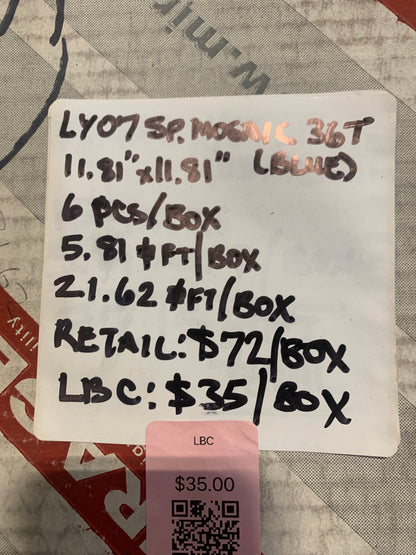 w.mir
LY07 SP. MOSAIC 36T
11.81" x 11.81" (BLUE)
6 PCS/BOX
5.81 $FT/BOX
21.62 #FT/BOX
RETAIL: $72/BOX
LBC: $35/BOX
ility
RA
LBC
$35.00